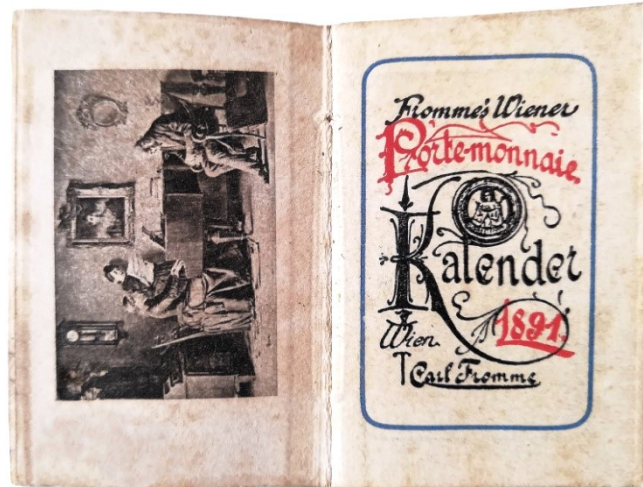 Fromme's Wiener
Porte-monnaie
Kalender
1891.
Wien
Carl Fromme